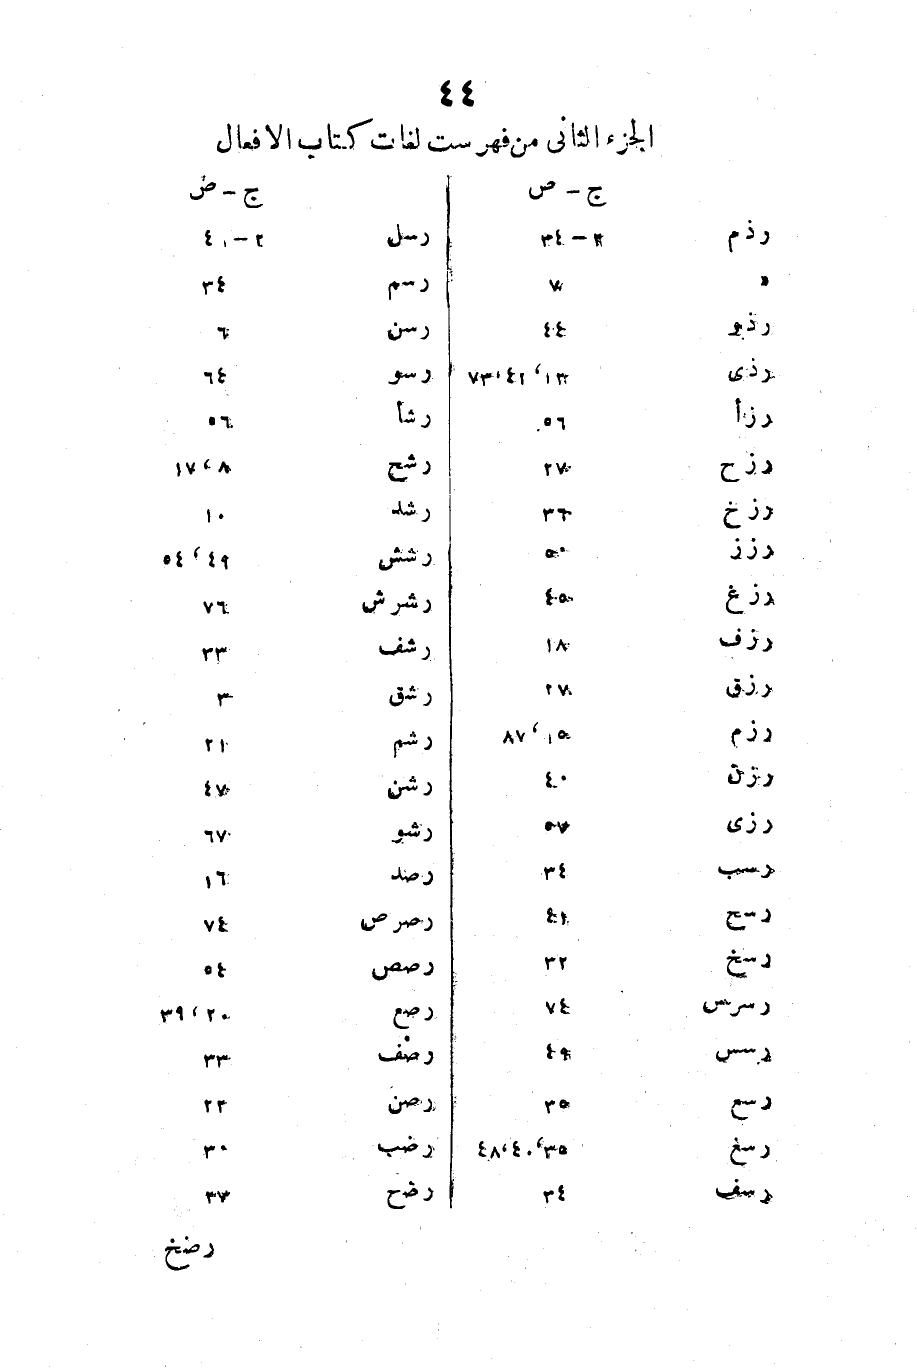 ٤٤
الجزء الثانى من فهرست لغات كتاب الافعال
ج - ص
رذم ٢ - ٣٤
» ٧
رذو ٤٤
رذى ١٣، ٤٢، ٧٣
رزأ ٥٦
رزح ٢٧
رزخ ٣٦
رزز ٥٠
رزغ ٤٥
رزف ١٨
رزق ٢٧
رزم ١٥، ٨٧
رزن ٤٠
رزى ٥٧
رسب ٣٤
رسح ٤١
رسخ ٣٢
رسرس ٧٤
رسس ٤٩
رسع ٣٥
رسغ ٣٥، ٤٠، ٤٨
رسف ٣٤
ج - ص
رسل ٢ - ٤٠
رسم ٣٤
رسن ٦
رسو ٦٤
رشأ ٥٦
رشح ٨، ١٧
رشد ١٠
رشش ٤٩، ٥٤
رشرش ٧٦
رشف ٣٣
رشق ٣
رشم ٢١
رشن ٤٧
رشو ٦٧
رصد ١٦
رصرص ٧٤
رصص ٥٤
رصع ٢٠، ٣٩
رصف ٣٣
رصن ٢٣
رضب ٣٠
رضح ٣٧
رضخ